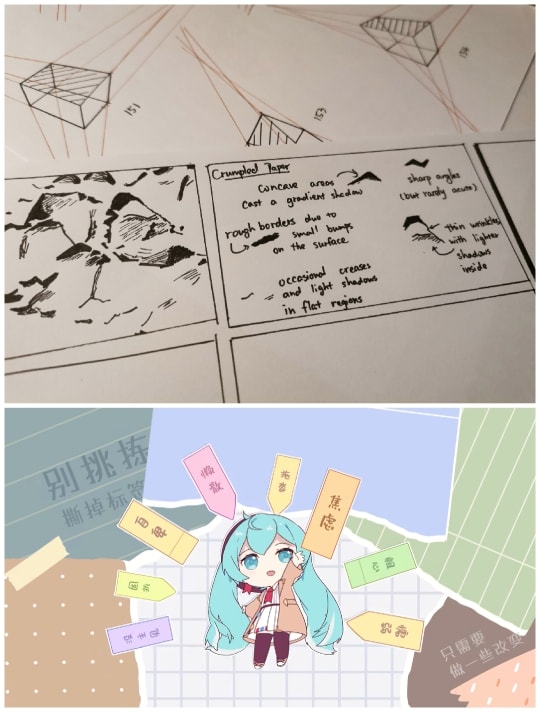 151
153
Crumpled Paper
concave areas
cast a gradient shadow
sharp angles
(but rarely acute)
rough borders due to
small bumps
on the surface
thin wrinkles
with lighter
shadows
inside
occasional creases
and light shadows
in flat regions
别挑拣
撕掉标签
懒散
焦虑
自卑
只需要
做一些改变